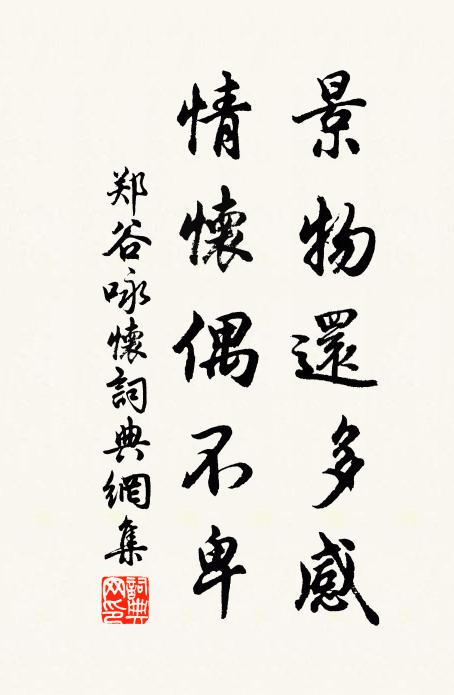 景物還多感
情懷偶不卑
郑谷咏懷詞典網集
詞典网印